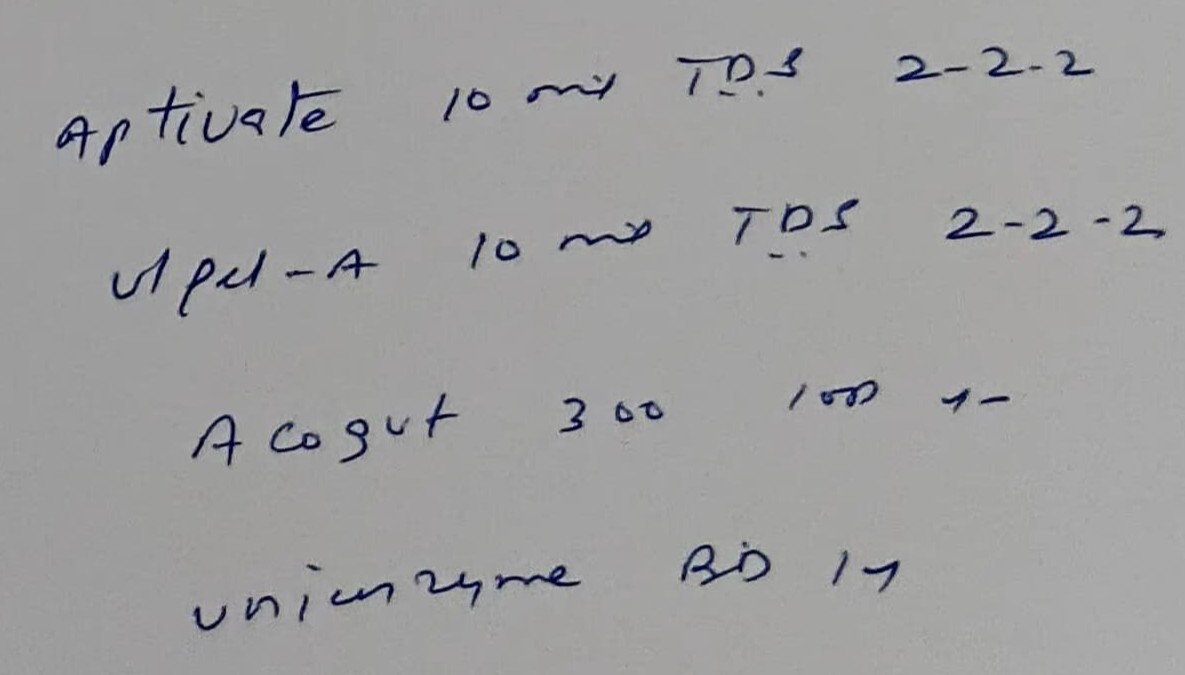 Aptivate 10 ml TDS 2-2-2
Ulgel-A 10 ml TDS 2-2-2
Acogut 300
unienzyme BD